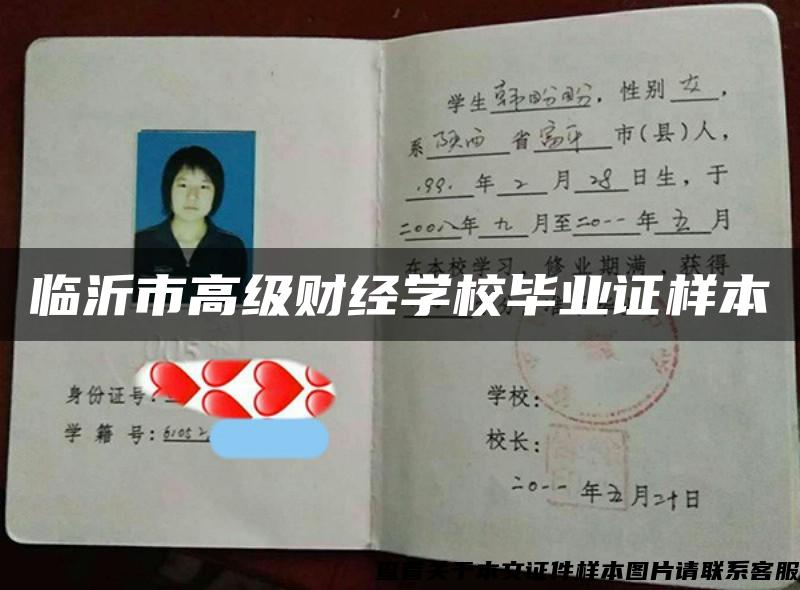 学生韩盼盼，性别女，
系陕西省富平市(县)人，
1991年2月28日生，于
二00八年九月至二0一一年五月
在本校学习，修业期满，获得
临沂市高级财经学校毕业证样本
身份证号：
学籍号：61052
学校：
校长：
二0一一年五月二十日
查看关于本文证件样本图片请联系客服